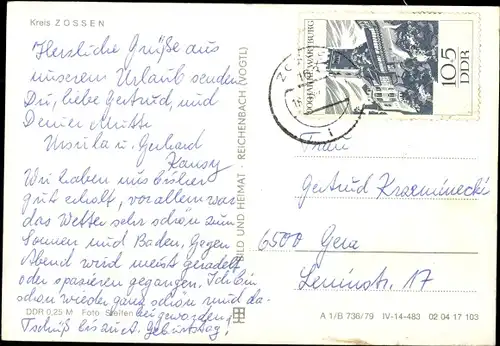 Kreis ZOSSEN
Herzliche Grüße aus
unserem Urlaub senden
Du, liebe Gertrud, und
Deiner Mutti
Ursula u. Gerhard
Wir haben uns bisher
gut erholt, vor allem war
das Wetter sehr schön zum
Sonnen und Baden. Gegen
Abend wird meist geradelt
oder spazieren gegangen. Ich bin
schon wieder ganz schön rund da-
bei geworden!
Tschüß bis zu Geburtstag!
DDR 0,25 M Foto
BILD UND HEIMAT · REICHENBACH (VOGTL)
900 JAHRE WARTBURG
10+5
DDR
Frau
Gertrud
6500 Gera
Leninstr. 17
A 1/B 736/79 IV-14-483 02 04 17 103